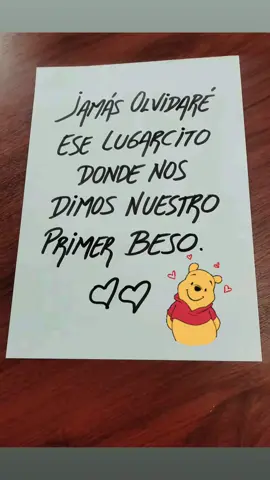 Jamás Olvidaré
ese Lugarcito
donde nos
dimos Nuestro
Primer Beso.